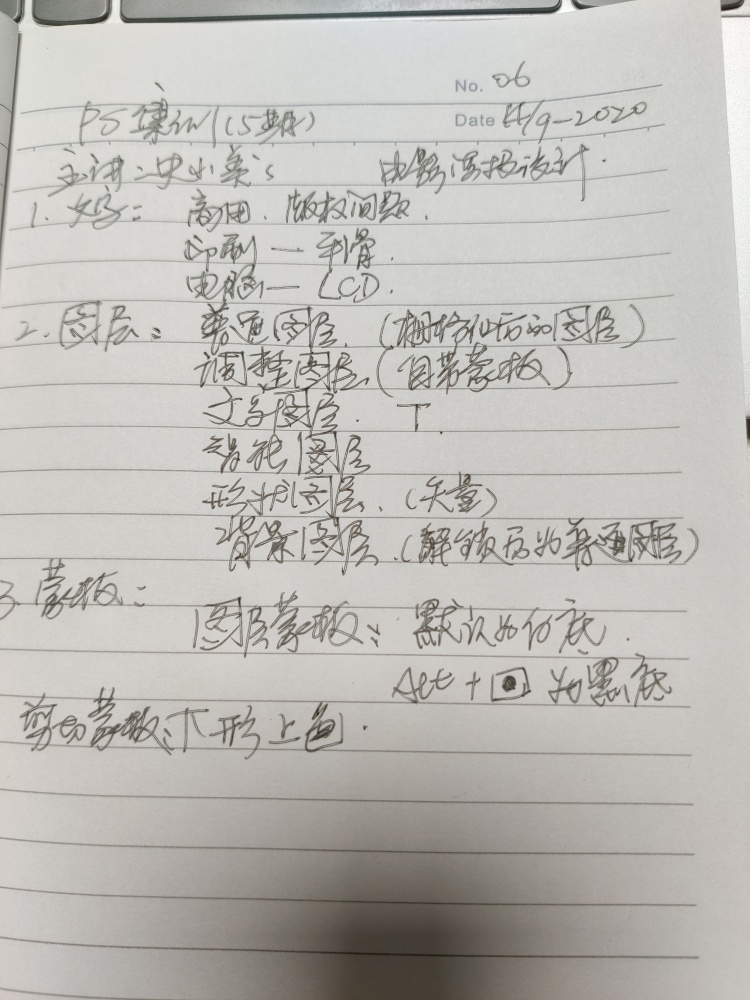 No. 06
PS集训(5期)
Date 11/9-2020
主讲:史小美 电影海报设计.
1. 文字: 商用. 版权问题.
印刷—平滑.
电脑—LCD.
2. 图层: 普通图层. (栅格化后的图层)
调整图层(自带蒙板)
文字图层. T.
智能图层
形状图层. (矢量)
背景图层. (解锁后为普通图层)
3. 蒙板:
图层蒙板: 默认为白底.
Alt + 为黑底
剪切蒙板: 下形上色.